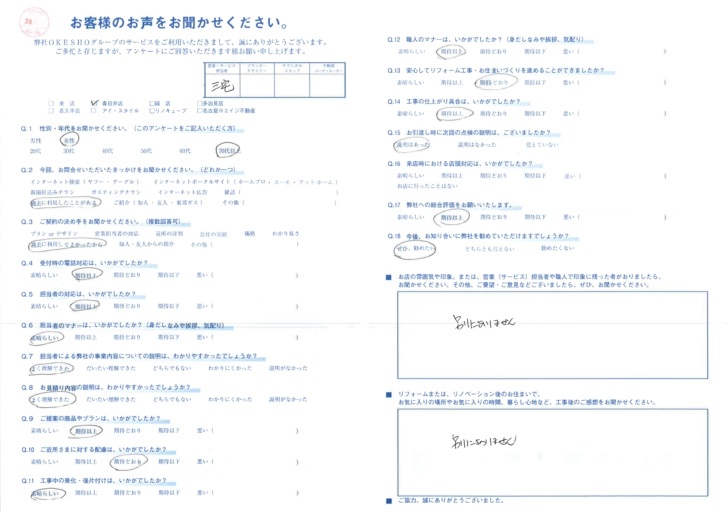 お客様のお声をお聞かせください。
弊社OKESHOグループのサービスをご利用いただきまして、誠にありがとうございます。
ご多忙と存じますが、アンケートにご回答いただきます様お願い申し上げます。
営業・サービス担当者 プランナーデザイナー テクニカルスタッフ 不動産コーディネーター
三宅
□ 本店 ☑ 春日井店 □ 緑店 □ 多治見店
□ 長久手店 □ アイ・スタイル □ リノキューブ □ 名古屋セエイン不動産
Q.1 性別・年代をお聞かせください。（このアンケートをご記入いただく方）
男性 女性
20代 30代 40代 50代 60代 70代以上
Q.2 今回、お問合せいただいたきっかけをお聞かせください。（どれか一つ）
インターネット検索（ヤフー・グーグル） インターネットポータルサイト（ホームプロ・スーモ・アットホーム）
新聞折込みチラシ ポスティングチラシ インターネット広告 雑誌（ ）
過去に利用したことがある ご紹介（知人・友人・東邦ガス） その他（ ）
Q.3 ご契約の決め手をお聞かせください。（複数回答可）
プラン or デザイン 営業担当者の対応 近所の評判 会社の実績 価格 わかり易さ
過去に利用してよかったから 知人・友人からの紹介 その他（ ）
Q.4 受付時の電話対応は、いかがでしたか？
素晴らしい 期待以上 期待どおり 期待以下 悪い（ ）
Q.5 担当者の対応は、いかがでしたか？
素晴らしい 期待以上 期待どおり 期待以下 悪い（ ）
Q.6 担当者のマナーは、いかがでしたか？（身だしなみや挨拶、気配り）
素晴らしい 期待以上 期待どおり 期待以下 悪い（ ）
Q.7 担当者による弊社の事業内容についての説明は、わかりやすかったでしょうか？
よく理解できた だいたい理解できた どちらでもない わかりにくかった 説明がなかった
Q.8 お見積り内容の説明は、わかりやすかったでしょうか？
よく理解できた だいたい理解できた どちらでもない わかりにくかった 説明がなかった
Q.9 ご提案の商品やプランは、いかがでしたか？
素晴らしい 期待以上 期待どおり 期待以下 悪い（ ）
Q.10 ご近所さまに対する配慮は、いかがでしたか？
素晴らしい 期待以上 期待どおり 期待以下 悪い（ ）
Q.11 工事中の美化・後片付けは、いかがでしたか？
素晴らしい 期待以上 期待どおり 期待以下 悪い（ ）
Q.12 職人のマナーは、いかがでしたか？（身だしなみや挨拶、気配り）
素晴らしい 期待以上 期待どおり 期待以下 悪い（ ）
Q.13 安心してリフォーム工事・お住まいづくりを進めることができましたか？
素晴らしい 期待以上 期待どおり 期待以下 悪い（ ）
Q.14 工事の仕上がり具合は、いかがでしたか？
素晴らしい 期待以上 期待どおり 期待以下 悪い（ ）
Q.15 お引渡し時に次回の点検の説明は、ございましたか？
説明はあった 説明はなかった 覚えていない
Q.16 来店時における店頭対応は、いかがでしたか？
素晴らしい 期待以上 期待どおり 期待以下 悪い（ ）
お店に行ったことはない
Q.17 弊社への総合評価をお願いいたします。
素晴らしい 期待以上 期待どおり 期待以下 悪い（ ）
Q.18 今後、お知り合いに弊社を勧めていただけますでしょうか？
ぜひ、勧めたい どちらとも言えない 勧めたくない
■ お店の雰囲気や印象。または、営業（サービス）担当者や職人で印象に残った者がおりましたら、
お聞かせください。その他、ご要望・ご意見などございましたら、ぜひ、お聞かせください。
別にありません
■ リフォームまたは、リノベーション後のお住まいで、
お気に入りの場所やお気に入りの時間、暮らし心地など、工事後のご感想をお聞かせください。
別にありません
■ ご協力、誠にありがとうございました。